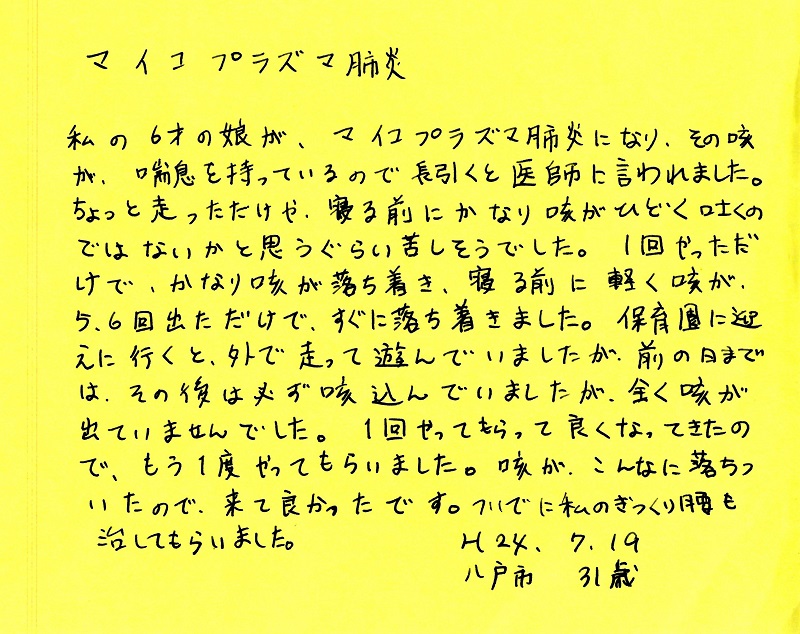 マイコプラズマ肺炎
私の6才の娘が、マイコプラズマ肺炎になり、その咳
が、喘息を持っているので長引くと医師に言われました。
ちょっと走っただけや、寝る前にかなり咳がひどく吐くの
ではないかと思うぐらい苦しそうでした。1回やっただ
けで、かなり咳が落ち着き、寝る前に軽く咳が、
5、6回出ただけで、すぐに落ち着きました。保育園に迎
えに行くと、外で走って遊んでいましたが、前の日まで
は、その後は必ず咳込んでいましたが、全く咳が
出ていませんでした。1回やってもらって良くなってきたの
で、もう1度やってもらいました。咳が、こんなに落ちつ
いたので、来て良かったです。ついでに私のぎっくり腰も
治してもらいました。
H24.7.19
八戸市 31歳